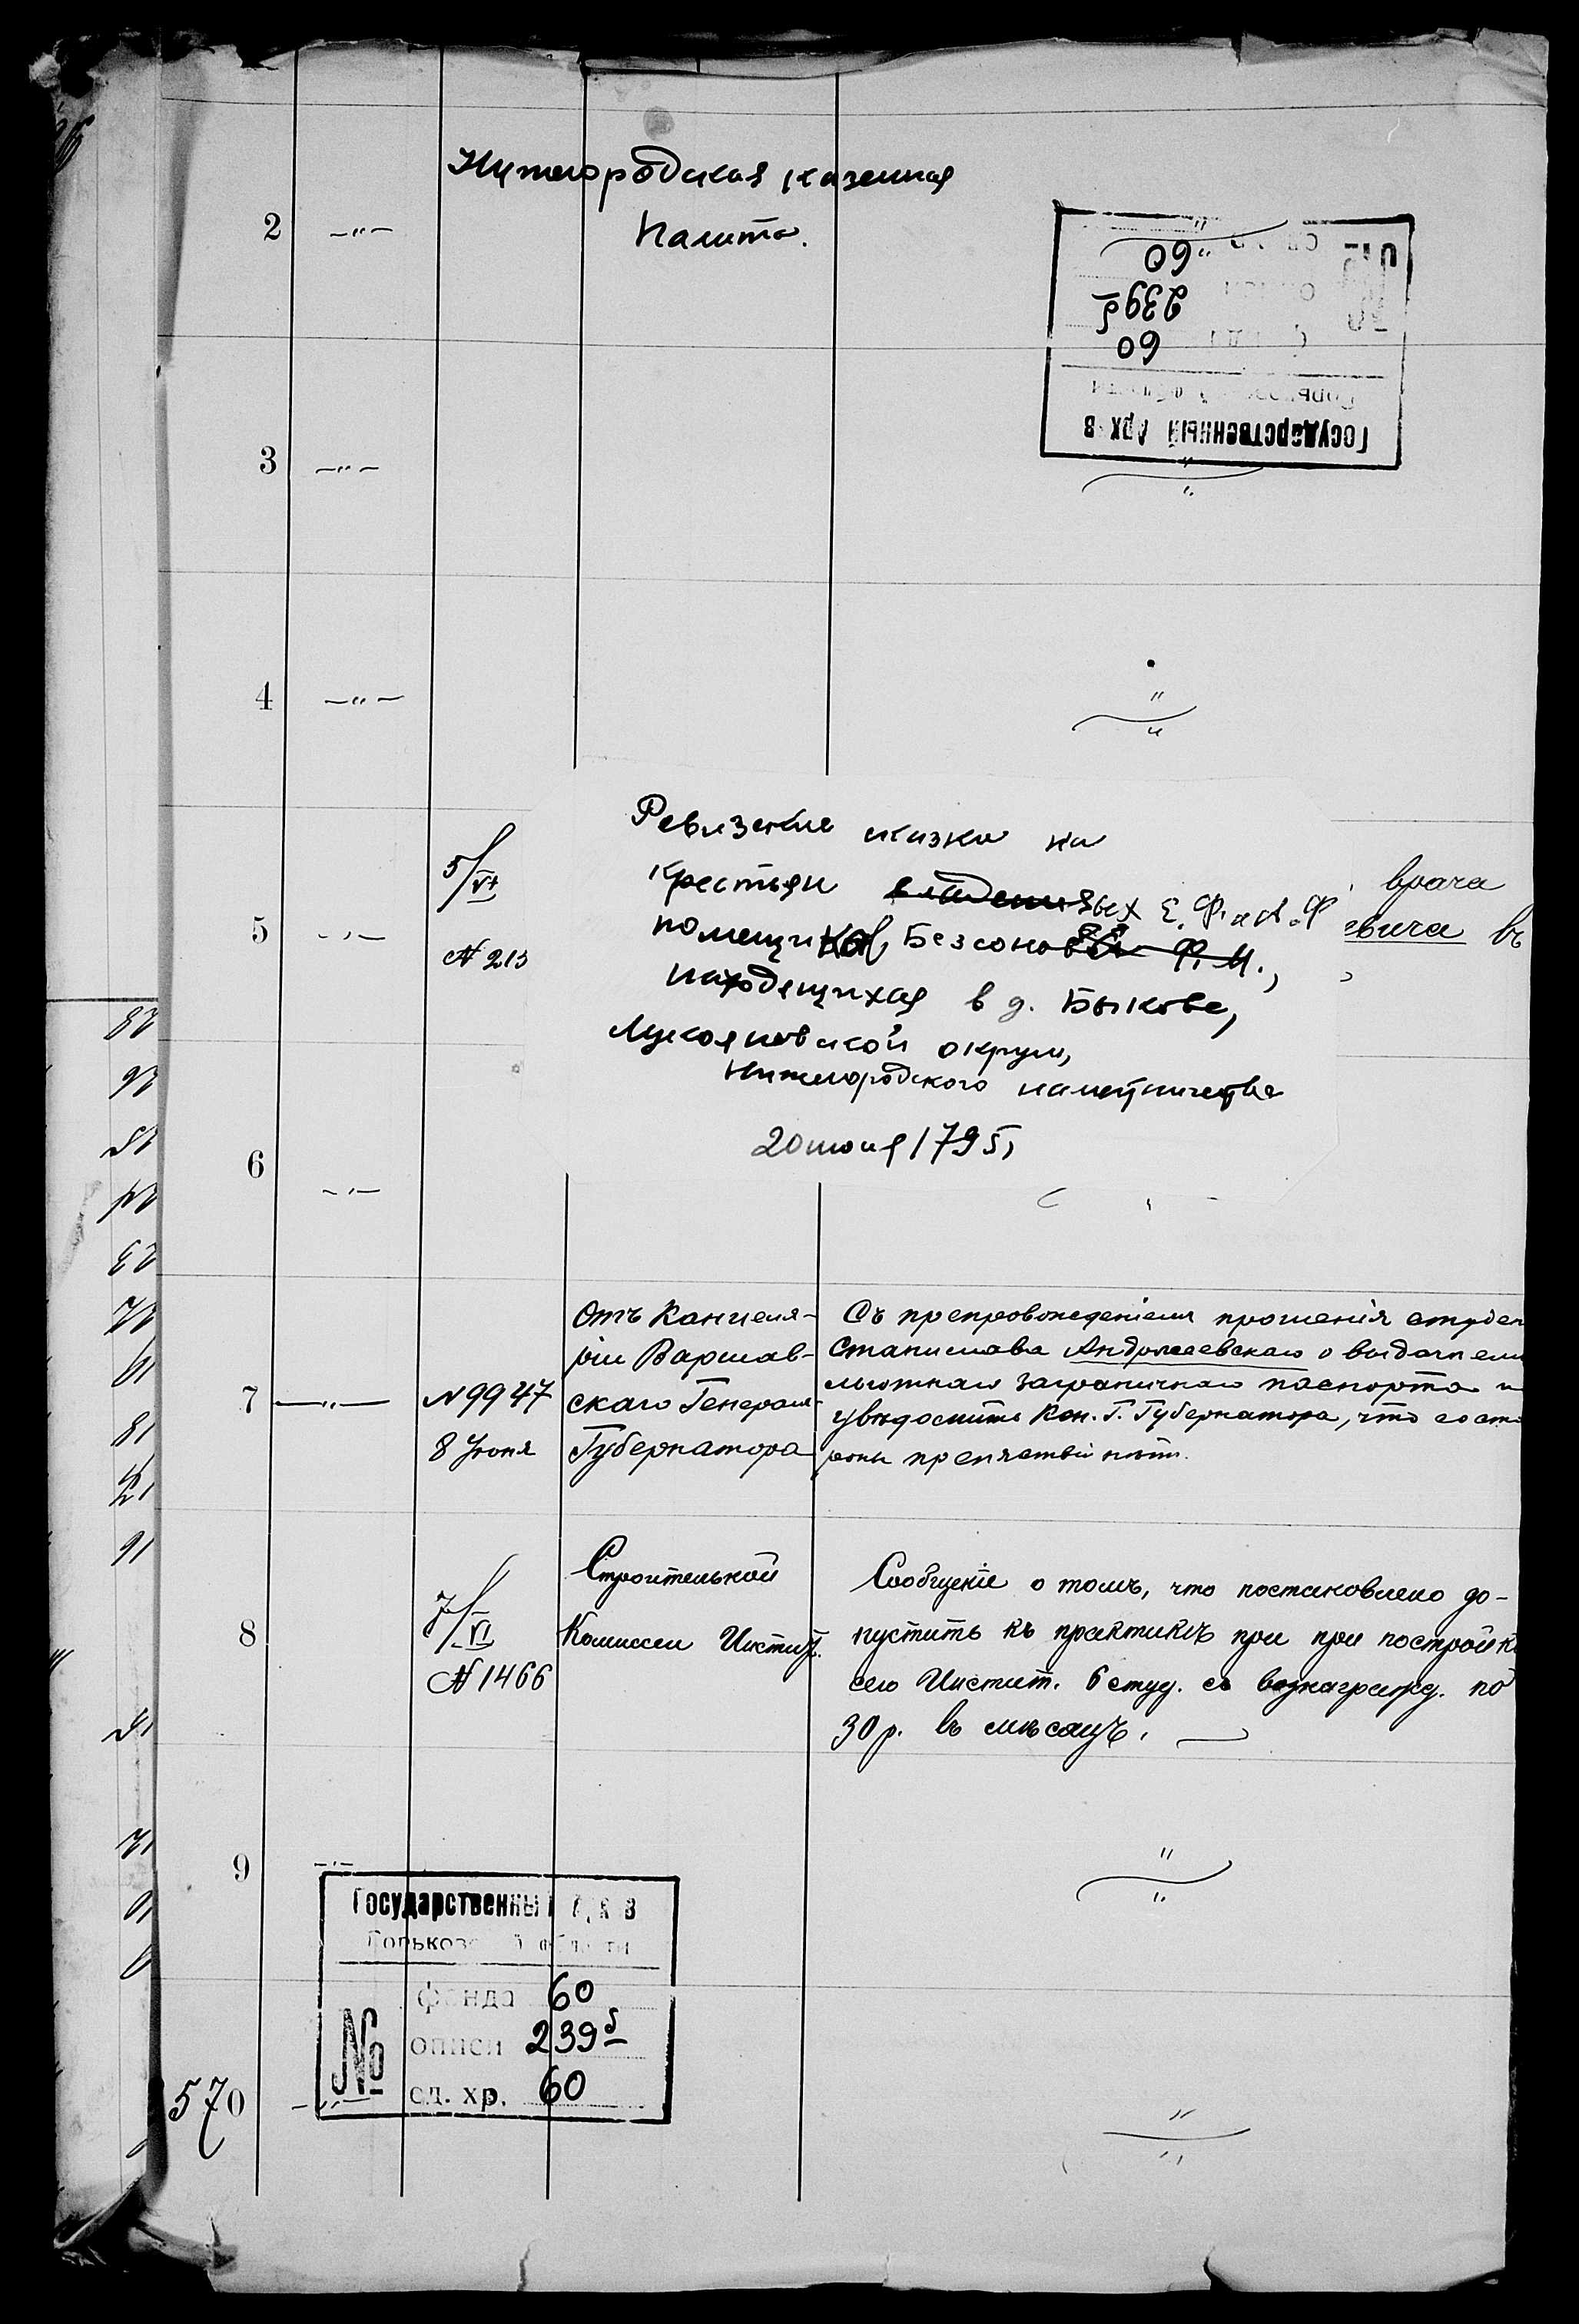 Нижегородская казенная
Палата.
2 —"—
60
239б
60
Государственный Архив
3 —"—
4 —"—
Ревизские сказки на
крестьян владения Е. Ф. и А. Ф
помещиков Безсоновых Ф. М.,
находящихся в д. Быкове,
Лукояновской округи,
Нижегородского наместничества
20 июня 1795 г.
5/VI
врача
5 —"—
евича въ
№ 213
6 —"—
Отъ Канцеля-
ріи Варшав-
скаго Генералъ-
Губернатора
Съ препровожденіемъ прошенія студен
Станислава Андржеевскаго о выдачи ему
льготнаго заграничнаго паспорта и
увѣдомить Кан. Г. Губернатора, что со сто
роны препятствій нѣтъ.
7 —"— № 9947
8 Іюня
Строительной
Комиссіи Инстит.
Сообщеніе о томъ, что постановлено до-
пустить къ практикѣ при при постройкѣ
сего Инстит. 6 студ. съ вознагражд. по
30 р. въ мѣсяцъ.
8
7/VI
№ 1466
9 —"—
Государственный Архив
Горьковской области
№
фонда 60
описи 239б
ед. хр. 60
570 —"—